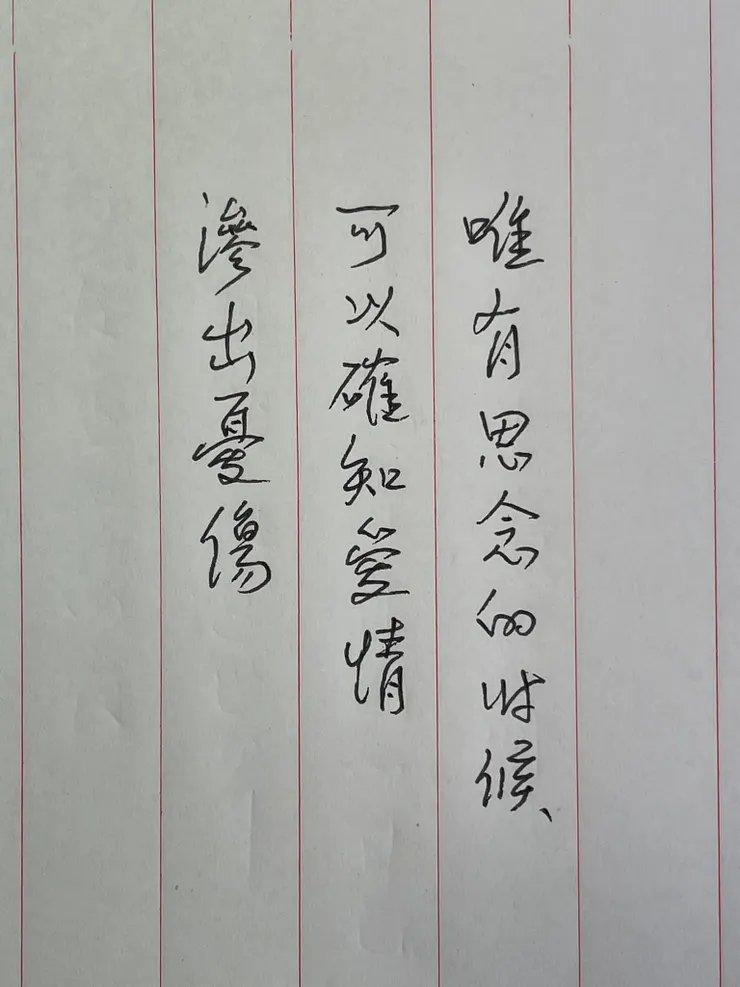 唯有思念的时候、
可以確知愛情
滲出憂傷